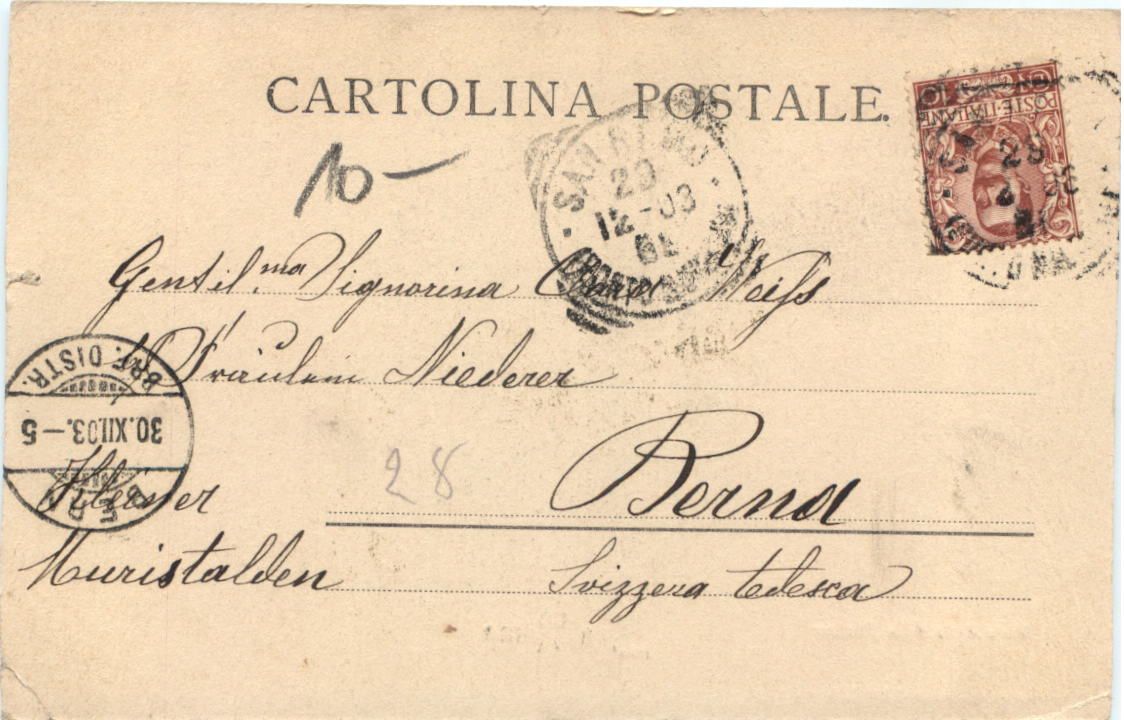 CARTOLINA POSTALE.
POSTE · ITALIANE
10
SAN REMO
29
12-03
10-
Gentil.ma Signorina Weiss
Fräulein Niederer
BRF. DISTR.
30.XII.03.-5
28
Berna
Kleiner
Muristalden
Svizzera tedesca